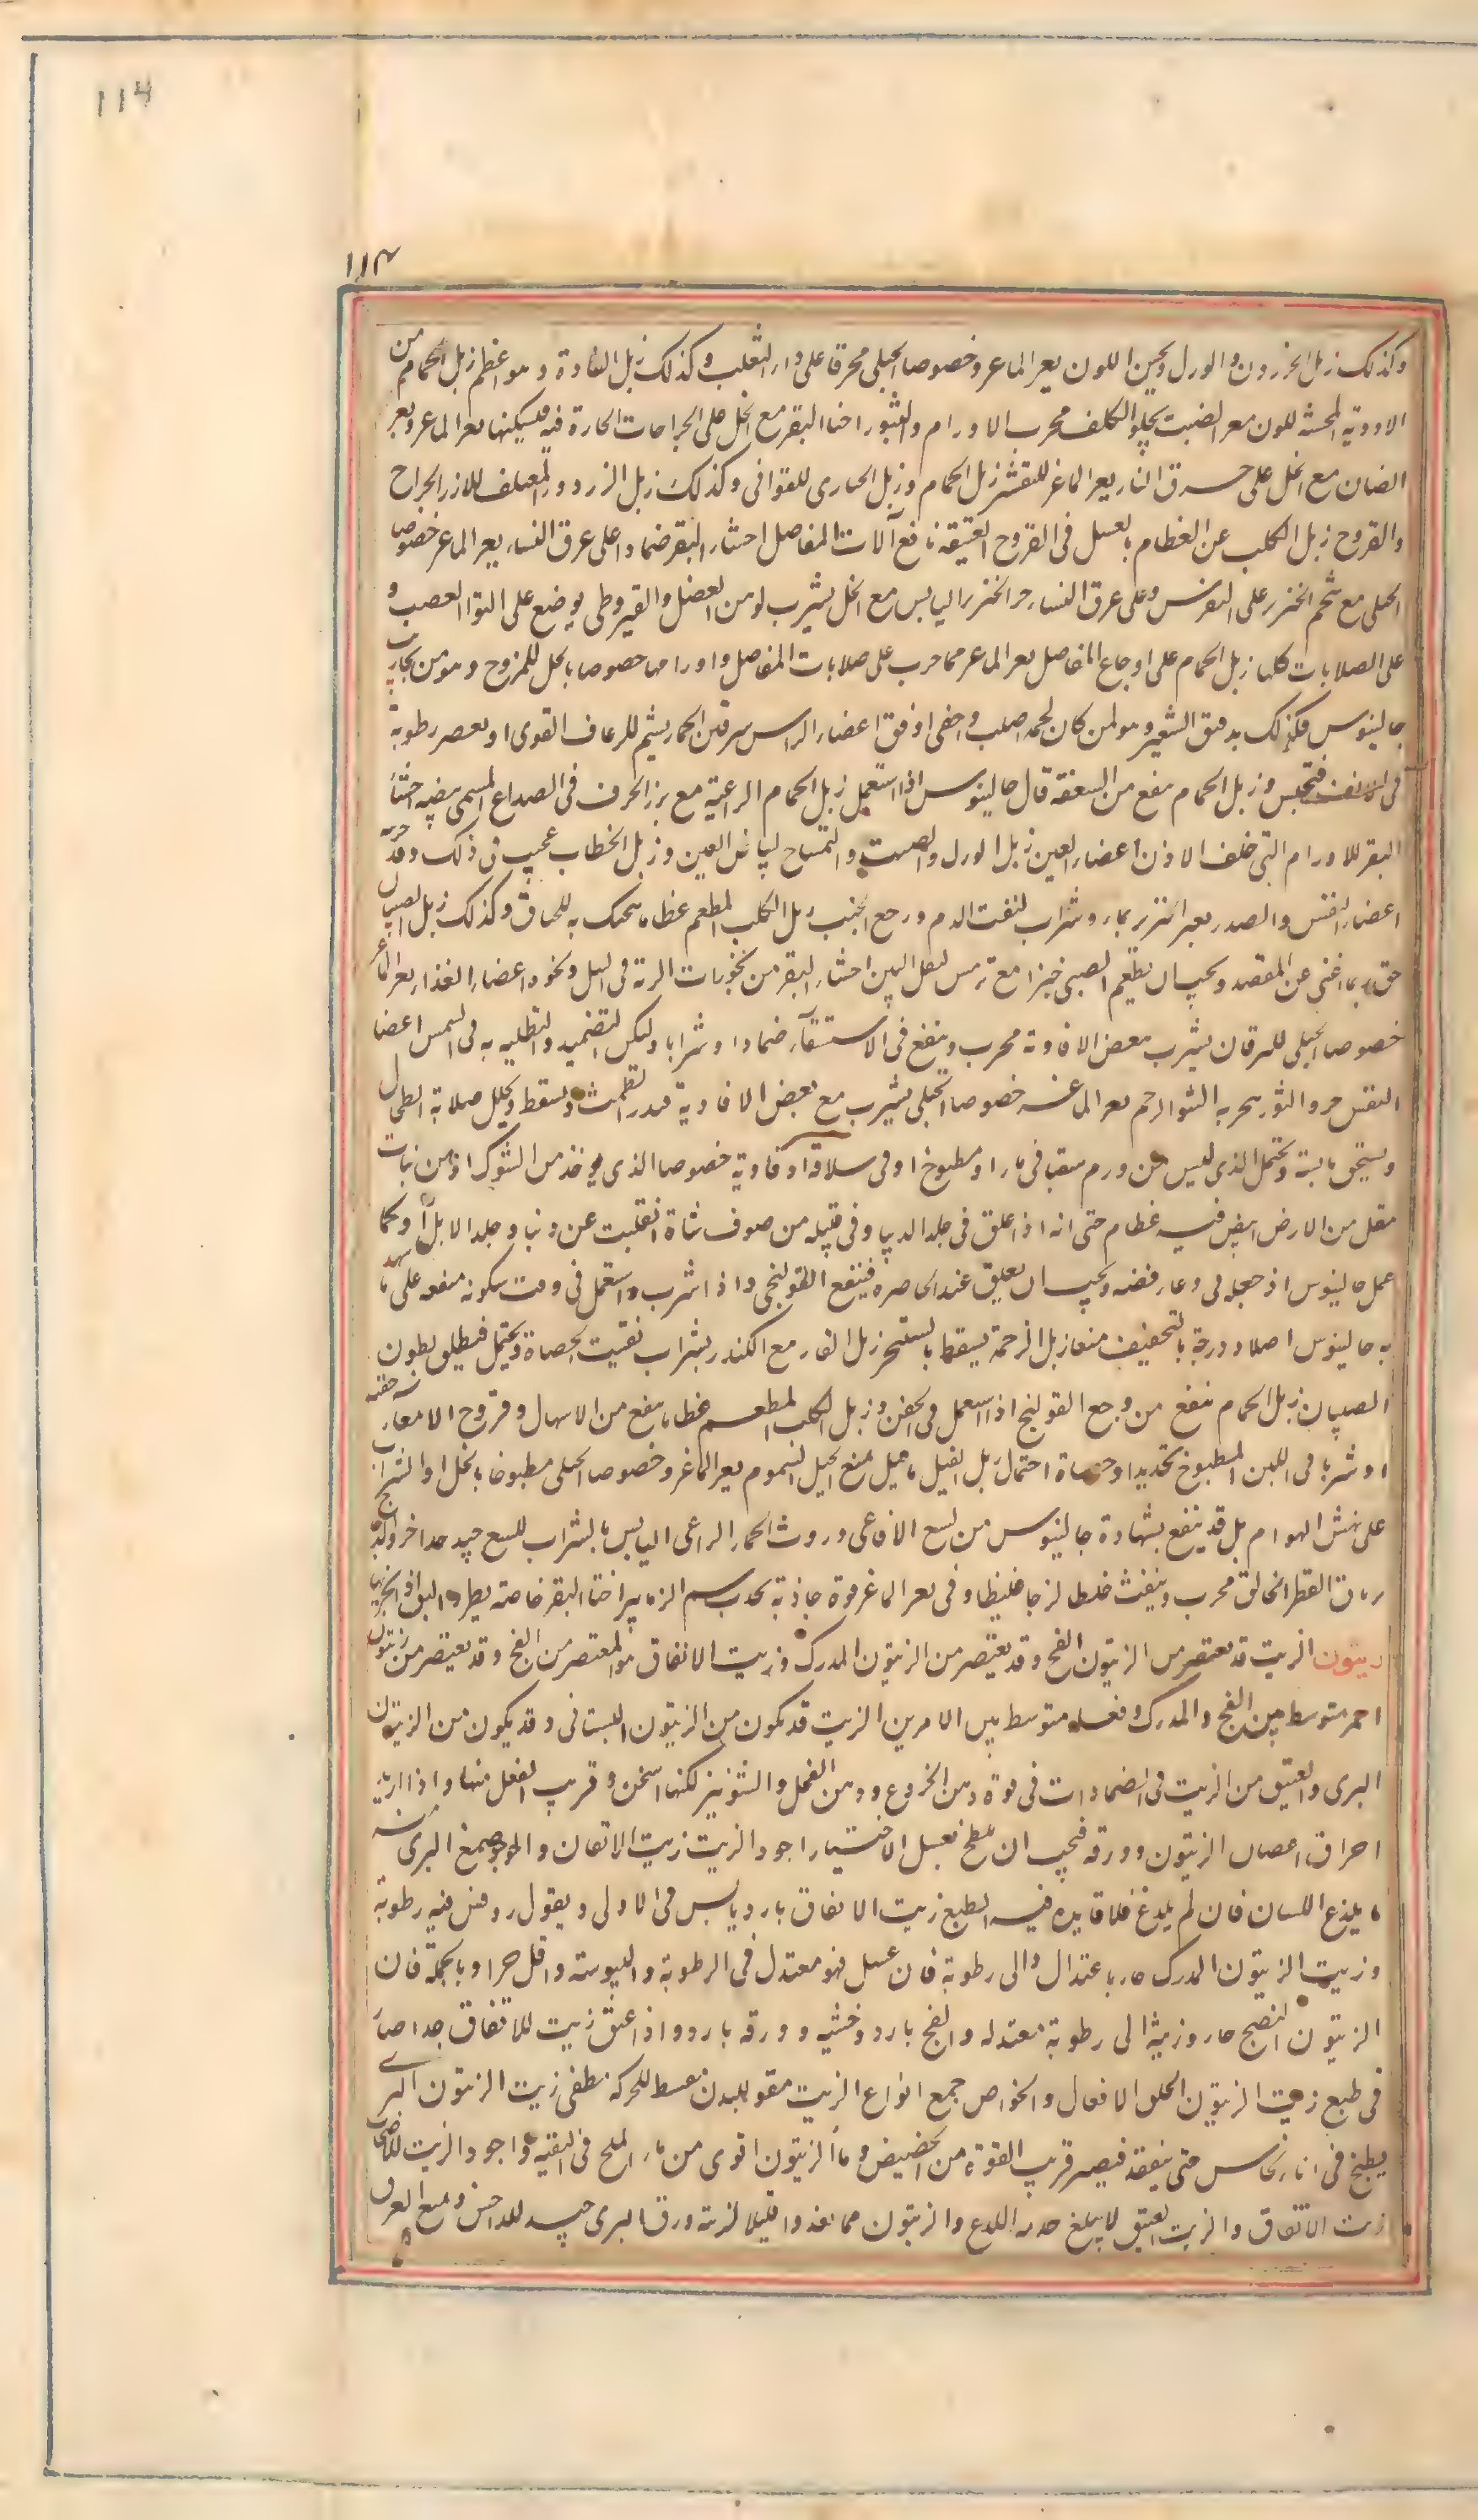 114
۱۱۳
وكذلك زبل الحرذون والورل يحسن اللون بعر الماعز وخصوصا الجبلى محرقا على داء الثعلب وكذلك زبل الفارة وهو اعظم زبل الحمام من
الادوية المحسنة للون بعر الضب يجلو الكلف مجرب الاورام والبثور اخثاء البقر مع الخل على الجراحات الحارة فيسكنها بعر الماعز وبعر
الضان مع الخل على حرق النار بعر الماعز للتقشر زبل الحمام وزبل الحبارى للقوابى وكذلك زبل الزرزور المعتلف للارز الجراح
والقروح زبل الكلب عن العظام بالعسل فى القروح العتيقة نافع آلات المفاصل اخثاء البقر ضمادا على عرق النساء بعر الماعز خصوصا
الجبلى مع شحم الخنزير على النقرس وعلى عرق النساء خرء الخنزير اليابس مع الخل يشرب لوهن العضل والقيروطى يوضع على التواء العصب و
على الصلابات كلها زبل الحمام على اوجاع المفاصل بعر الماعز مما جرب على صلابات المفاصل واورامها خصوصا بالخل الممزوج وهو من تجارب
جالينوس فكذلك بدقيق الشعير وهو لمن كان لحمه اصلب واجفى اوفق اعضاء الراس سرقين الحمار يشم للرعاف القوى او يعصر رطوبة
فى الانف فتحبس وزبل الحمام ينفع من السعفة قال جالينوس اذا استعمل زبل الحمام الراعية مع بزر الحرف فى الصداع المسمى بيضة اخثاء
البقر للاورام التى خلف الاذن اعضاء العين زبل الورل والضب والتمساح لبياض العين وزبل الخطاب عجيب فى ذلك وقد جربه
اعضاء النفس والصدر بعر الخنزير بماء وشراب لنفث الدم ووجع الجنب زبل الكلب المطعم عظاما يتحنك به للخناق وكذلك زبل الصبيان
حتى ربما اغنى عن الفصد ويجب ان يطعم الصبى خبزا مع ترمس لقل النتن اخثاء البقر من بخورات الرية فى السل ونحوه اعضاء الغذاء بعر الماعز
خصوصا الجبلى لليرقان يشرب ببعض الافاوية مجرب وينفع فى الاستسقاء ضمادا وشرابا وليكن التضميد والتطليه به فى الشمس اعضا
النفض خرء الثور يبخر به لنتو الرحم بعر الماعز خصوصا الجبلى يشرب مع بعض الافاوية فيدر الطمث ويسقط ويحلل صلابة الطحال
ويسحق يابسة ويحتمل الذى ليس عن ورم سقيا فى ماء او مطبوخا او فى سلاقة او فاوية خصوصا الذى يوخذ من الشوك او من نبات
مقل من الارض ابيض فيه عظام حتى انه اذا علق فى جلد الديبا وفى فتيله من صوف شاة انفلتت عن ذئب او جلد الابل كما
عمل جالينوس اذ جعله فى وعاء فضة ويجب ان يعلق عند الخاصرة فينفع القولنجى واذا شرب واستعمل فى وقت سكونه منعه على ما شهد
به جالينوس اصلا ودرجة بالتخفيف منعا زبل الرخمة يسقط بالتبخر زبل الفار مع الكندر بشراب لتفتيت الحصاة ويحتمل فيطلق بطون
الصبيان زبل الحمام ينفع من وجع القولنج اذا استعمل فى الحقن وزبل الكلب المطعم عظاما ينفع من الاسهال وقروح الامعاء حقنة
او شربا فى اللبن المطبوخ بحديد او حصاة احتمال زبل الفيل ما قيل يمنع الحبل السموم بعر الماعز وخصوصا الجبلى مطبوخا بالخل او الشراب
على نهش الهوام بل قد ينفع بشهادة جالينوس من لسع الافاعى وروث الحمار الراعى اليابس بالشراب للسع جيد جدا خرء الدجاج
ترياق الفطر الخانق مجرب وينفث خلطا لزجا غليظا وفى بعر الماعز قوة جاذبة تجذب سم الزنابير اخثاء البقر خاصة يطرد البق اذا بخر به
زيتون الزيت قد يعتصر من الزيتون الفج وقد يعتصر من الزيتون المدرك وزيت الانفاق هو المعتصر من الفج وقد يعتصر من زيتون
احمر متوسط بين الفج والمدرك وفعله متوسط بين الامرين الزيت قد يكون من الزيتون البستانى وقد يكون من الزيتون
البرى والعتيق من الزيت فى الضمادات فى قوة دهن الخروع ودهن الفجل والشونيز لكنها اسخن وقريب الفعل منها واذا اريد
احراق اعصان الزيتون وورقه فيجب ان يلطخ بعسل الاختيار اجود الزيت زيت الانفاق والاجود صمغ البرى منه
ما يلذع اللسان فان لم يلدغ فلا فايده فيه الطبع زيت الانفاق بارد يابس فى الاولى ويقول روفس فيه رطوبة
وزيت الزيتون المدرك حار باعتدال والى رطوبة فان غسل فهو معتدل فى الرطوبة واليبوسة واقل حرا وبالجملة فان
الزيتون النضيج حار وزيته الى رطوبة معتدله والفج بارد وخشبه وورقه بارد واذا عتق زيت الانفاق جدا صار
فى طبع زيت الزيتون الحلو الافعال والخواص جميع انواع الزيت مقو للبدن منشط للحركة مطفى زيت الزيتون البرى
يطبخ فى اناء نحاس حتى ينعقد فيصير قريب القوة من الحضض وماء الزيتون اقوى من ماء الملح فى التنقيه واجود الزيت للاصحا
زيت الانفاق والزيت العتيق لا يبلغ حدته اللذع والزيتون مما يغذو قليلا الزينة ورق البرى جيد للداحس ويمنع العرق